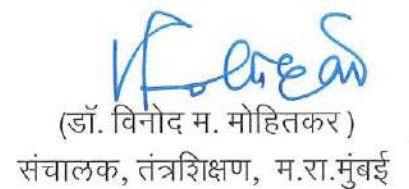 (डॉ. विनोद म. मोहितकर )
संचालक, तंत्रशिक्षण, म.रा.मुंबई